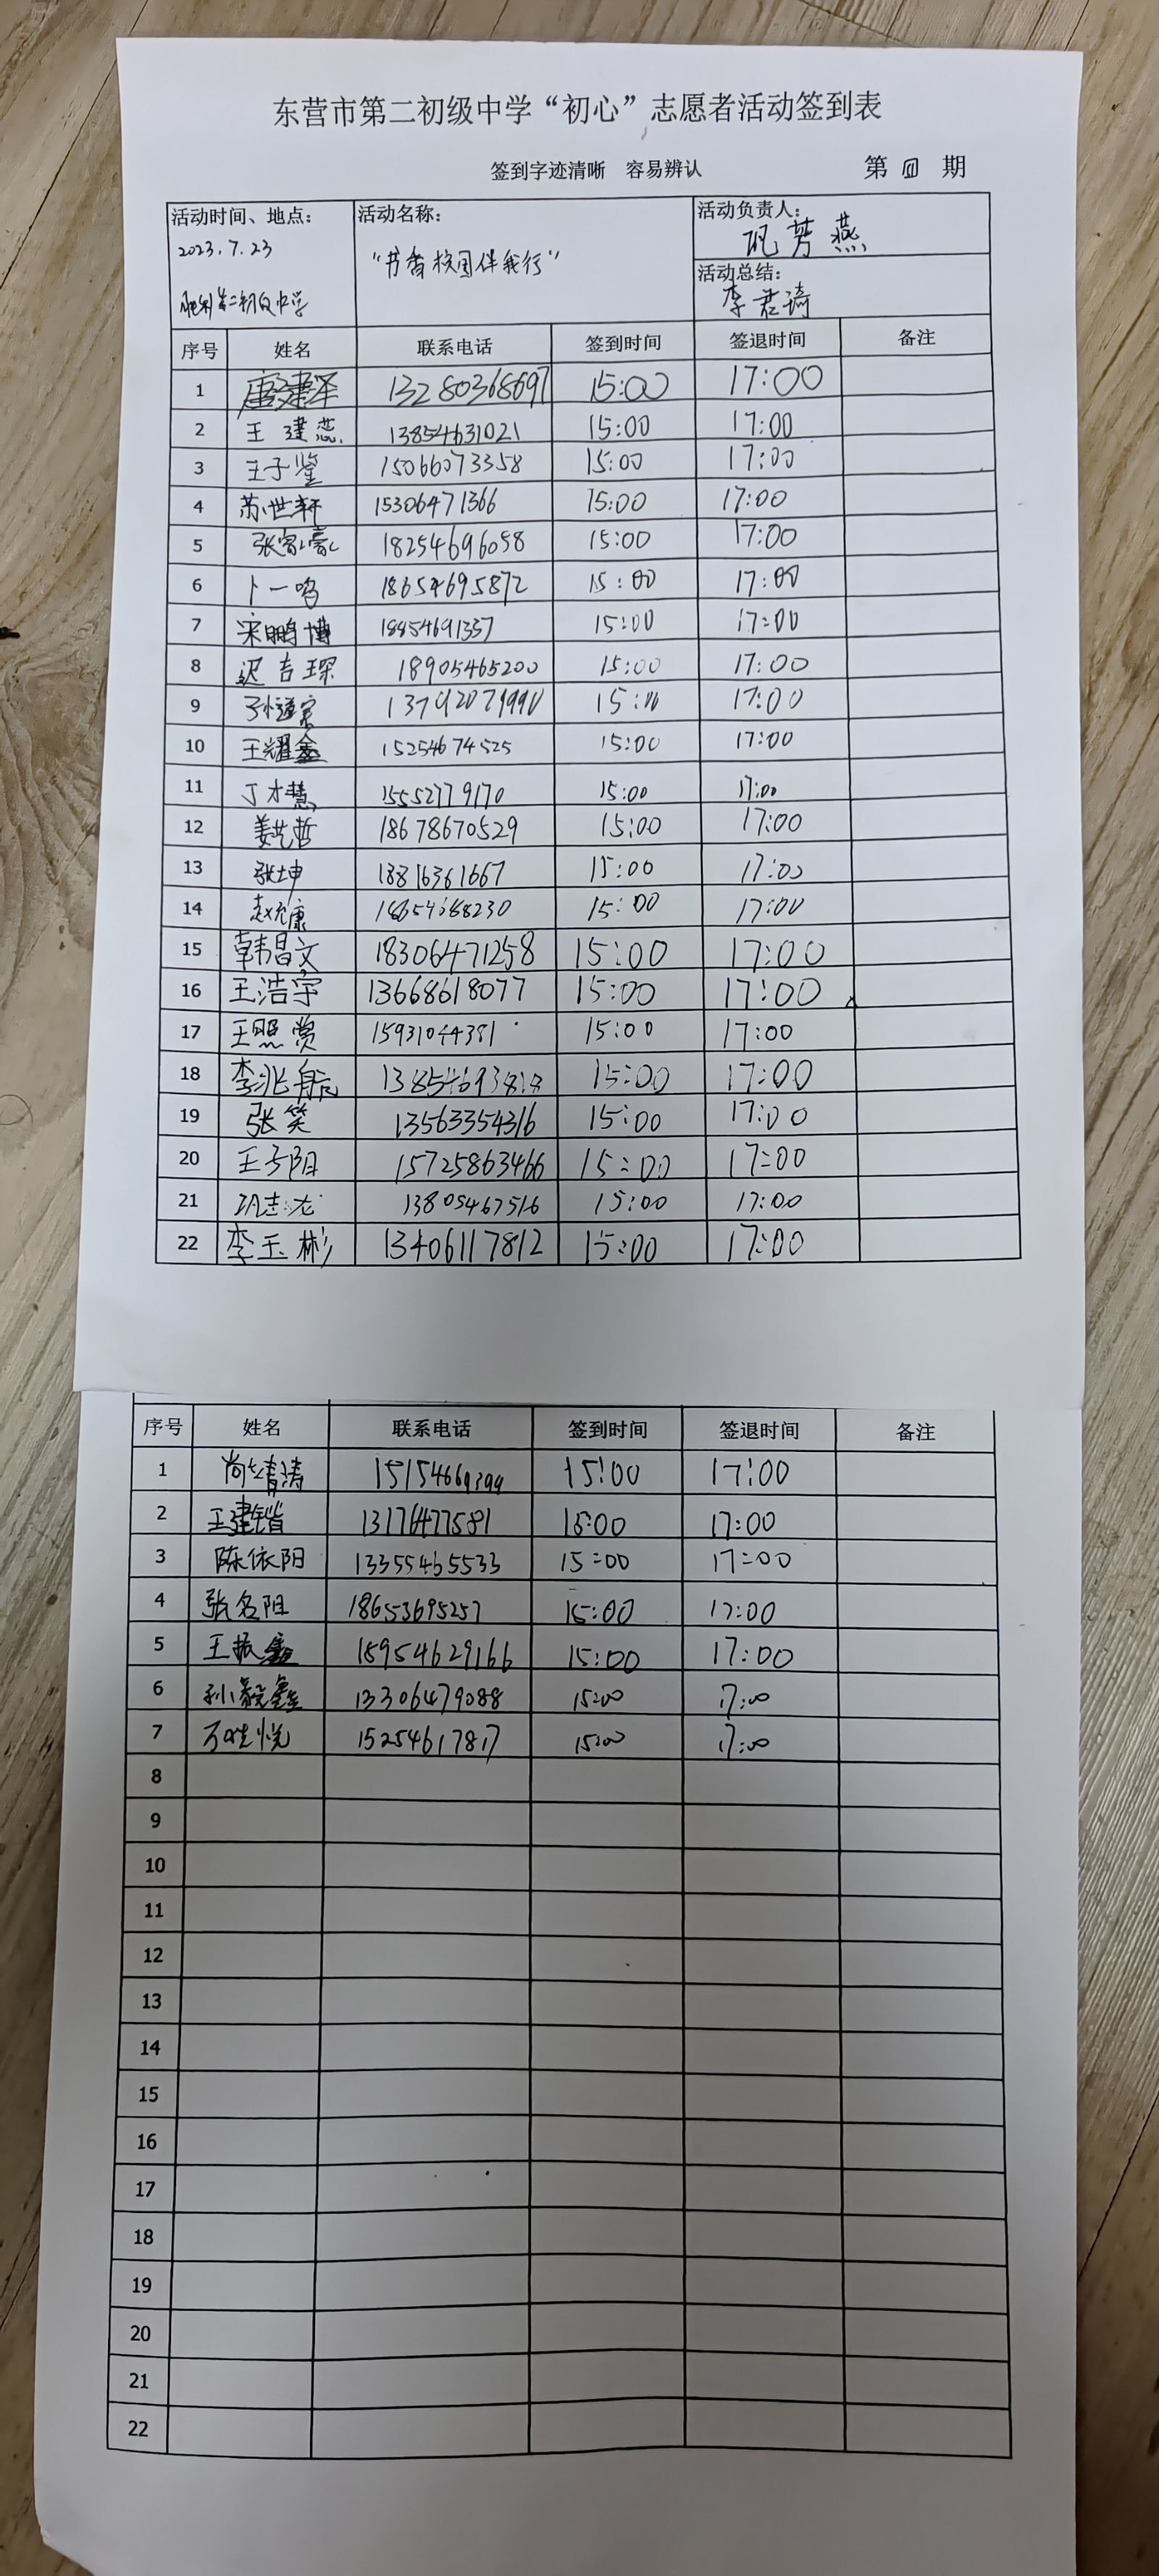 东营市第二初级中学“初心”志愿者活动签到表
签到字迹清晰 容易辨认 第 期
活动时间、地点： 活动名称： 活动负责人：
2023.7.23 “书香校园伴我行” 巩芳燕
活动总结：
第二初级中学 李君琦
序号 姓名 联系电话 签到时间 签退时间 备注
1 唐建泽 13280368697 15:00 17:00
2 王建蕊 13854631021 15:00 17:00
3 王子鉴 15066073358 15:00 17:00
4 苏世轩 15306471366 15:00 17:00
5 18254696058 15:00 17:00
6 卜一鸣 18654695872 15:00 17:00
7 宋鹏博 15:00 17:00
8 迟吉琛 18905465200 15:00 17:00
9 17:00
10 王耀鑫 15254674525 15:00 17:00
11 丁才慧 15552779170 15:00 17:00
12 姜先哲 18678670529 15:00 17:00
13 张坤 15:00 17:00
14 赵允康 15:00 17:00
15 韩昌文 18306471258 15:00 17:00
16 王浩宇 13668618077 15:00 17:00
17 王照赏 15931044381 15:00 17:00
18 李兆航 15:00 17:00
19 张笑 13563354316 15:00 17:00
20 王子阳 15725863466 15:00 17:00
21 13805467516 15:00 17:00
22 李玉彬 13406117812 15:00 17:00
序号 姓名 联系电话 签到时间 签退时间 备注
1 尚靖涛 15:00 17:00
2 王建锴 13176477581 15:00 17:00
3 陈依阳 13355465533 15:00 17:00
4 张名阳 18653695257 15:00 17:00
5 王振鑫 18954629166 15:00 17:00
6 孙毅鑫 13306479088 15:00 17:00
7 15254617817 15:00 17:00
8
9
10
11
12
13
14
15
16
17
18
19
20
21
22